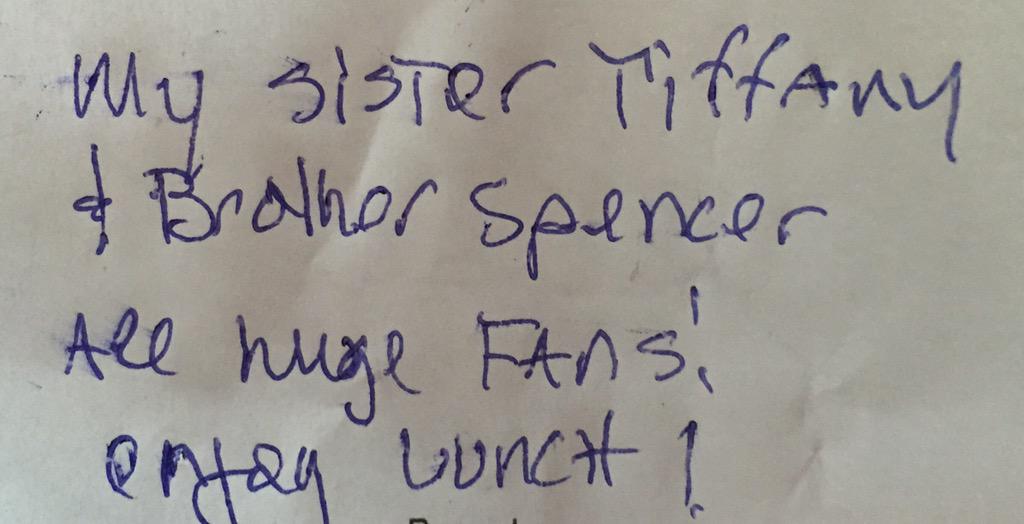 My sister Tiffany
& Brother Spencer
All huge FANs!
enjoy Lunch!